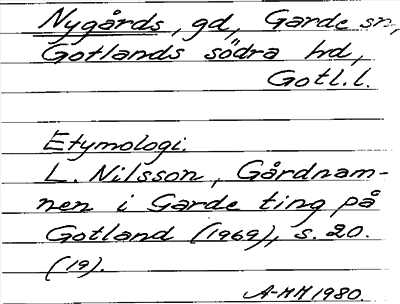 Nygårds, gd, Garde sn,
Gotlands södra hd,
Gotl.l.
Etymologi.
L. Nilsson, Gårdnam-
nen i Garde ting på
Gotland (1969), s. 20.
(19).
A-MH 1980.